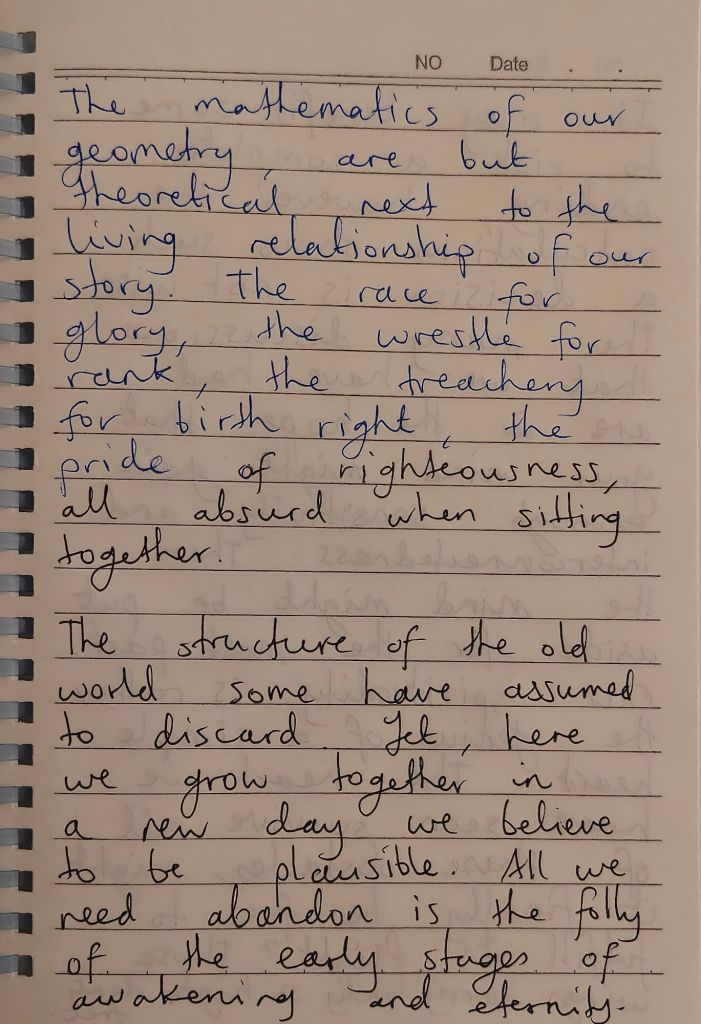 NO Date . .
The mathematics of our
geometry, are but
theoretical next to the
living relationship of our
story. The race for
glory, the wrestle for
rank, the treachery
for birth right, the
pride of righteousness,
all absurd when sitting
together.
The structure of the old
world some have assumed
to discard. Yet, here
we grow together in
a new day we believe
to be plausible. All we
need abandon is the folly
of the early stages of
awakening and eternity.